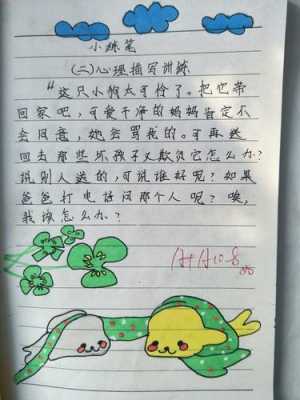 小练笔
(二)心理描写训练
“这只小狗太可怜了。把它带
回家吧，可爱干净的妈妈肯定不
会同意，她会骂我的。可再送
回去那些坏孩子又欺负它怎么办？
说别人送的，可说谁好呢？如果
爸爸打电话问那个人呢？唉，
我该怎么办？